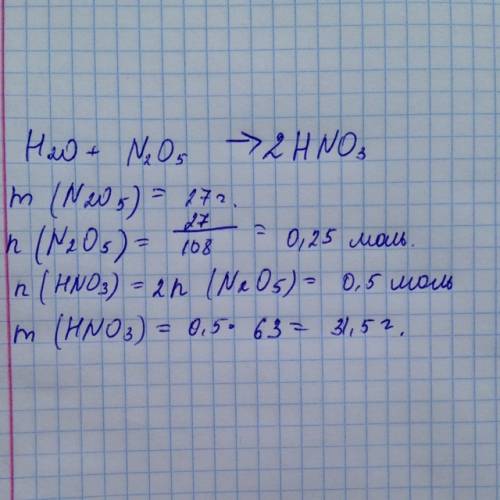 H2O + N2O5 → 2HNO3
m (N2O5) = 27г.
n (N2O5) = 27/108 = 0,25 моль.
n (HNO3) = 2n (N2O5) = 0,5 моль
m (HNO3) = 0,5 · 63 = 31,5г.